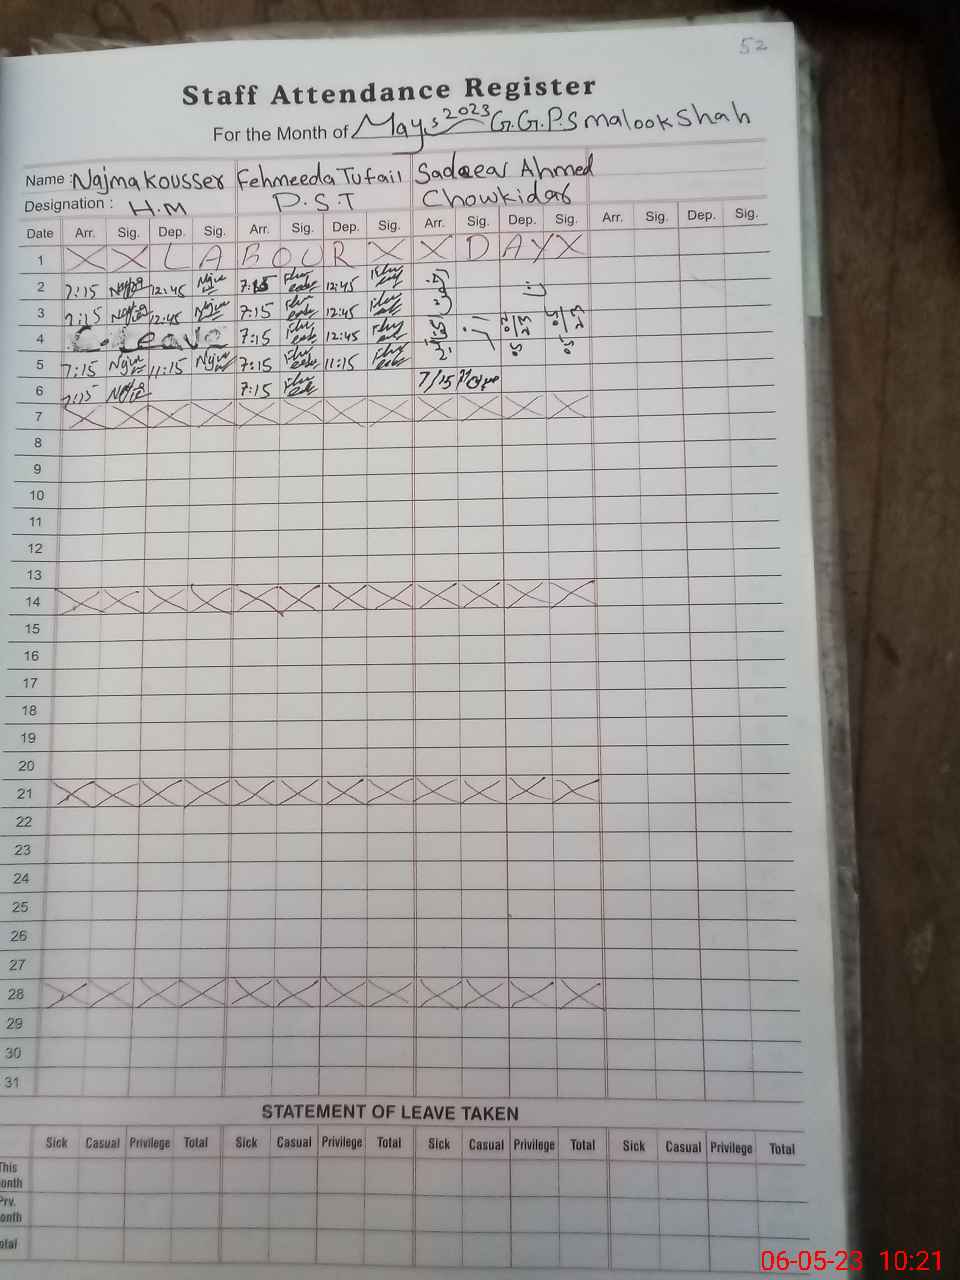 52
Staff Attendance Register
For the Month of May,s 2023 G.G.P.S malook Shah
Name : Najma Kousser Fehmeeda Tufail Sadeear Ahmed
Designation : H.M P.S.T Chowkidar
Date Arr. Sig. Dep. Sig. Arr. Sig. Dep. Sig. Arr. Sig. Dep. Sig. Arr. Sig. Dep. Sig.
1 X X L A B O U R X X D A Y X
2 7:15 12:45 7:15 12:45
3 7:15 12:45 7:15 12:45
4 C. Leave 7:15 12:45
5 7:15 11:15 7:15 11:15
6 7:15 7:15 7/15
7 X X X X X X X X X X X X
8
9
10
11
12
13
14 X X X X X X X X X X X X
15
16
17
18
19
20
21 X X X X X X X X X X X X
22
23
24
25
26
27
28 X X X X X X X X X X X X
29
30
31
STATEMENT OF LEAVE TAKEN
Sick Casual Privilege Total Sick Casual Privilege Total Sick Casual Privilege Total Sick Casual Privilege Total
This
onth
Prv.
onth
otal
06-05-23 10:21